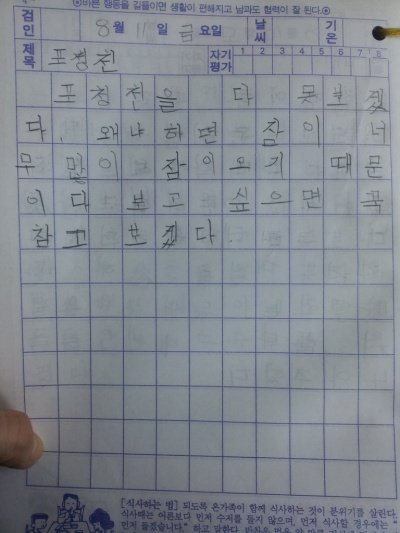 ⊙바른 행동을 길들이면 생활이 편해지고 남과도 협력이 잘 된다.⊙
검인 8월 11일 금요일 날씨 기온
제목 포청천 자기평가 1 2 3 4 5 6 7 8
포청천을 다 못보겠
다. 왜냐하면 잠이 너
무 많이 잠이오기 때문
이다 보고 싶으면 꾹
참고 보겠다.
[식사하는 법] 되도록 온가족이 함께 식사하는 것이 분위기를 살린다.
식사때는 어른보다 먼저 수저를 들지 않으며, 먼저 식사할 경우에는 "
먼저 들겠습니다" 하고 말한다.